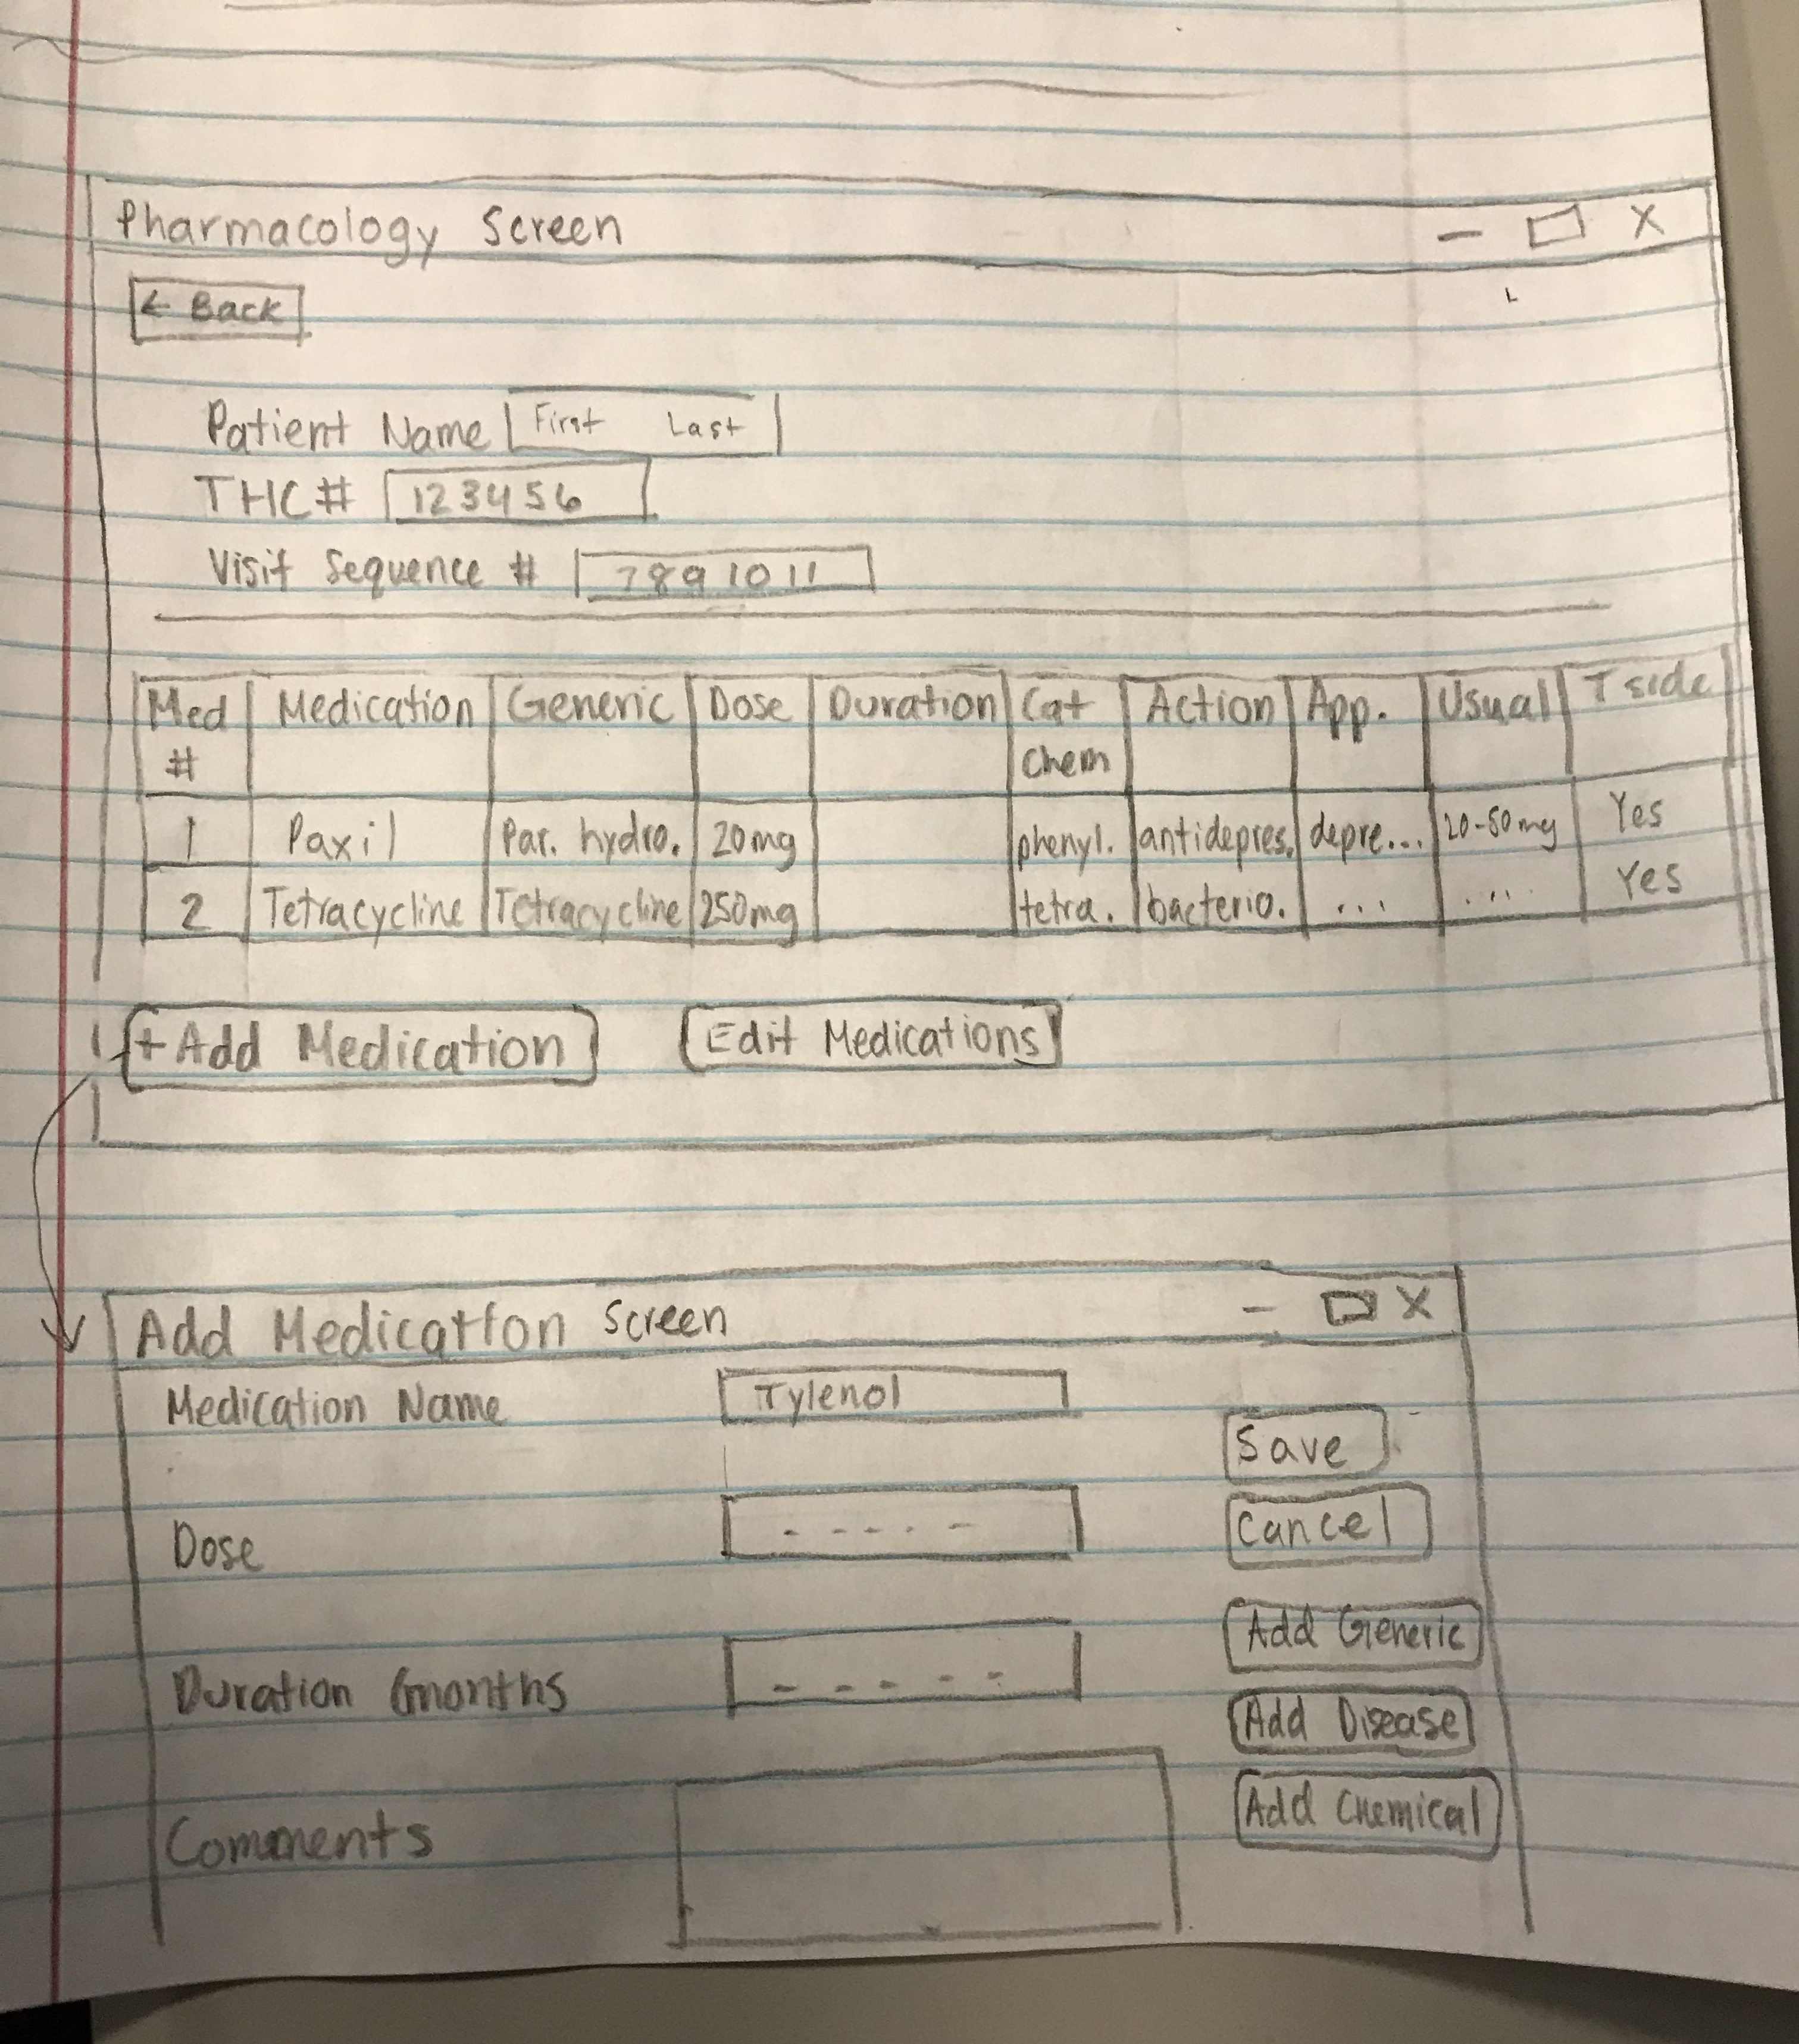 Pharmacology Screen – X
← Back
Patient Name First Last
THC# 123456
Visit Sequence # 7891011
Med # Medication Generic Dose Duration Cat Chem Action App. Usual T side
1 Paxil Par. hydro. 20mg phenyl. antidepres. depre... 20-50mg Yes
2 Tetracycline Tetracycline 250mg tetra. bacterio. ... .... Yes
+ Add Medication Edit Medications
Add Medication Screen – X
Medication Name Tylenol
Save
Dose - - - - -
Cancel
Add Generic
Duration (months - - - - -
Add Disease
Add Chemical
Comments